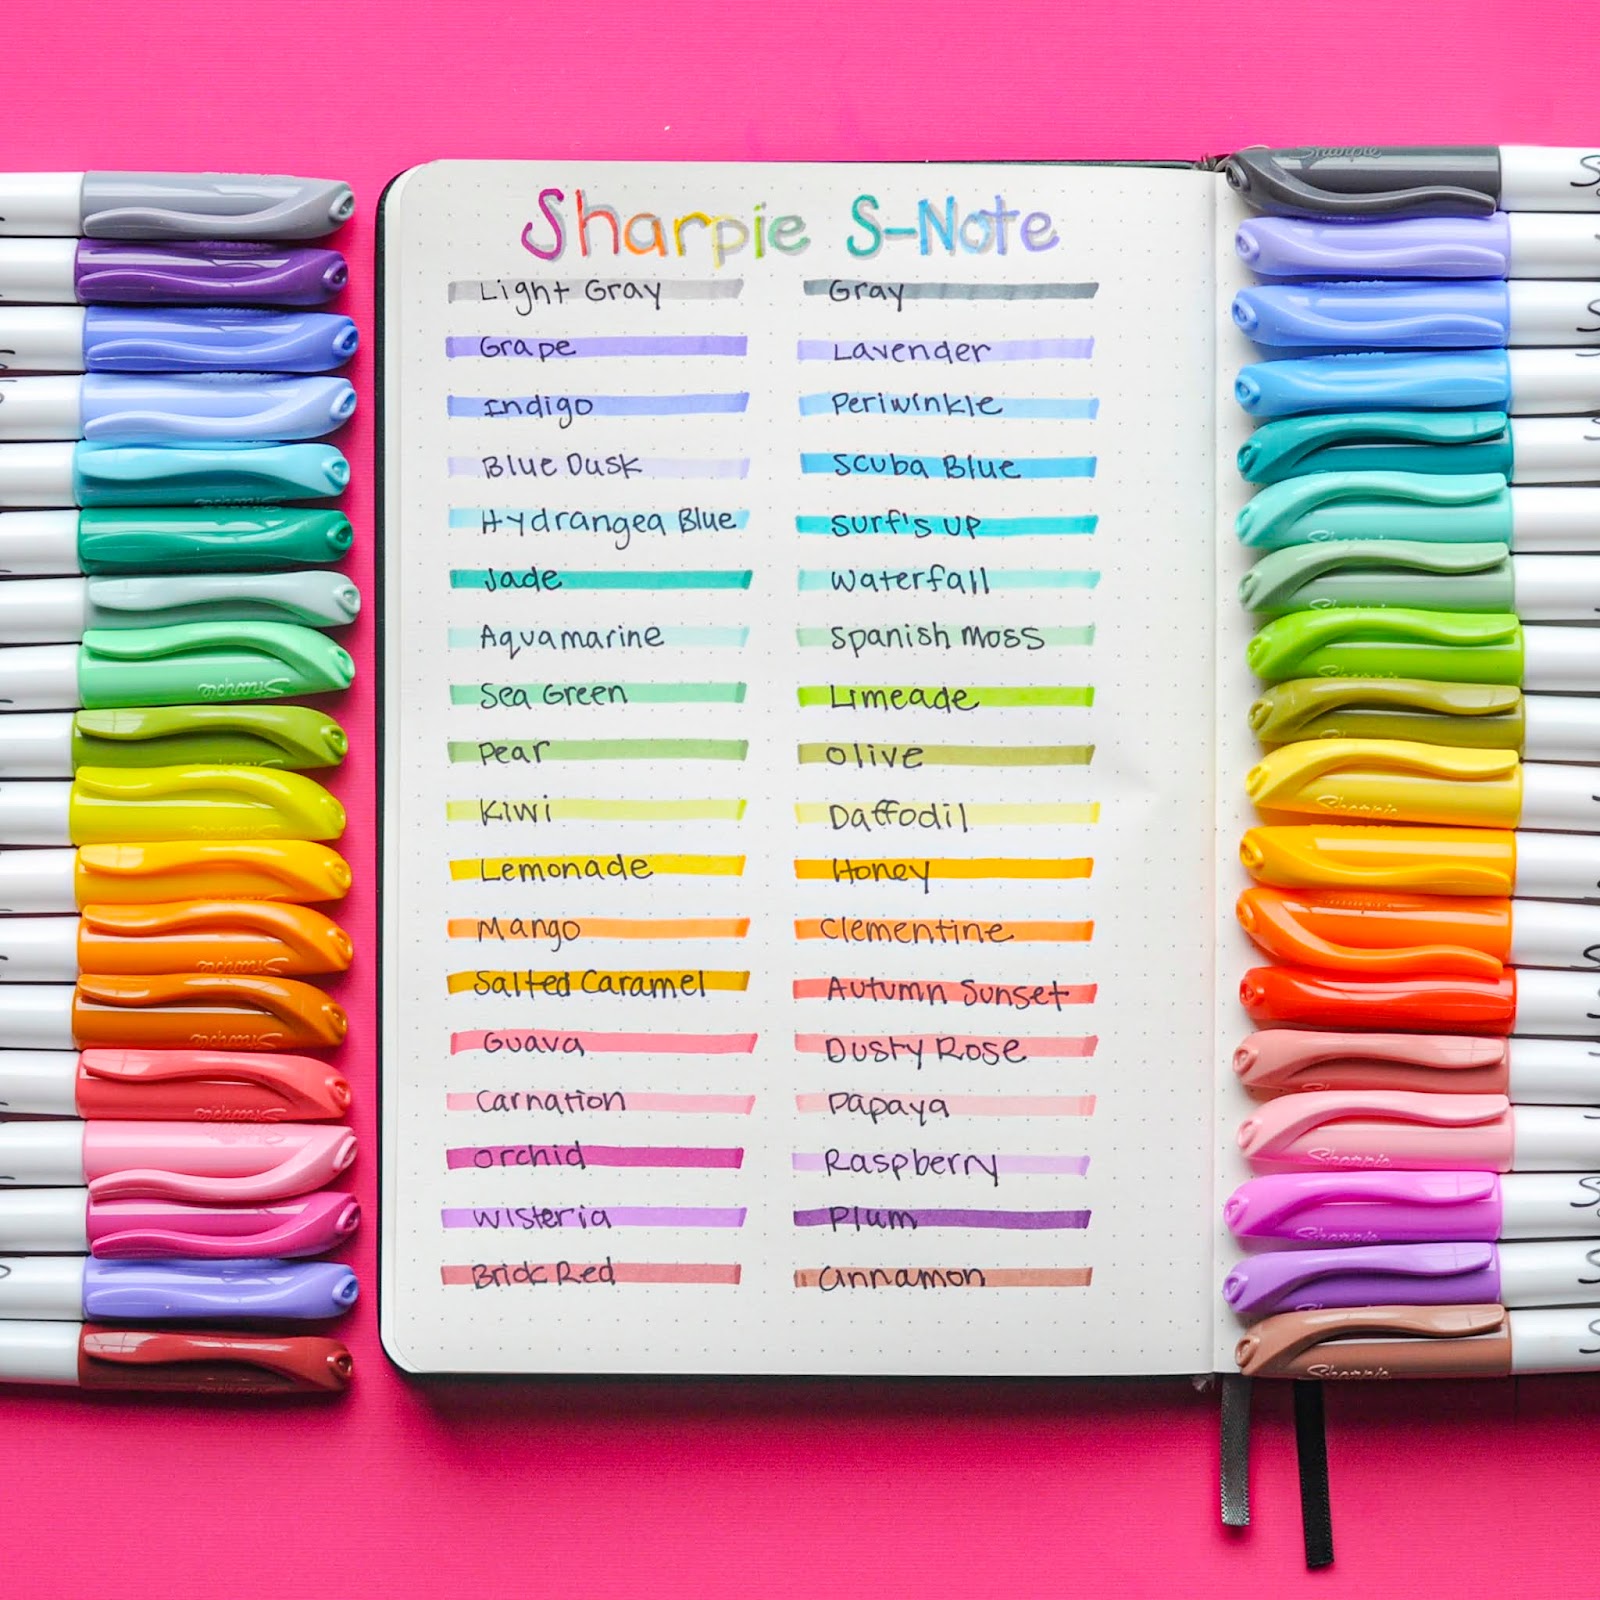 Sharpie S-Note
Light Gray
Gray
Grape
Lavender
Indigo
Periwinkle
Blue Dusk
Scuba Blue
Hydrangea Blue
Surf's Up
Jade
Waterfall
Aquamarine
Spanish Moss
Sea Green
Limeade
Pear
Olive
Kiwi
Daffodil
Lemonade
Honey
Mango
Clementine
Salted Caramel
Autumn Sunset
Guava
Dusty Rose
Carnation
Papaya
Orchid
Raspberry
Wisteria
Plum
Brick Red
Cinnamon
Sharpie
Sharpie
Sharpie
Sharpie
Sharpie
Sharpie
Sharpie
Sharpie
Sharpie
Sharpie
Sharpie
Sharpie